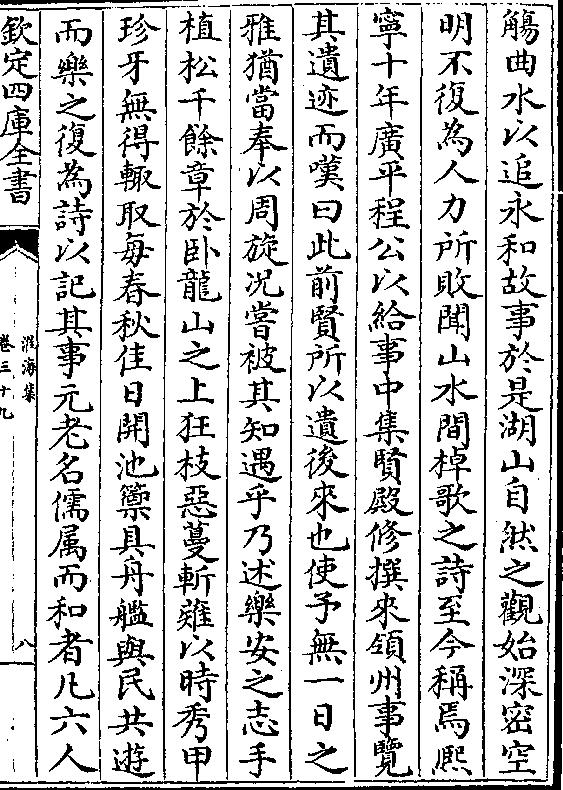 觴曲水以追永和故事於是湖山自然之觀始深密空
明不復為人力所敗聞山水間棹歌之詩至今稱焉熈
寧十年廣平程公以給事中集賢殿修撰來領州事覽
其遺迹而嘆曰此前賢所以遺後來也使予無一日之
雅猶當奉以周旋况嘗被其知遇乎乃述樂安之志手
植松千餘章於卧龍山之上狂枝惡蔓斬薙以時秀甲
珍牙無得輙取每春秋佳日開池籞具舟艦與民共遊
而樂之復為詩以記其事元老名儒属而和者凡六人
欽定四庫全書
淮海集
卷三十九
八